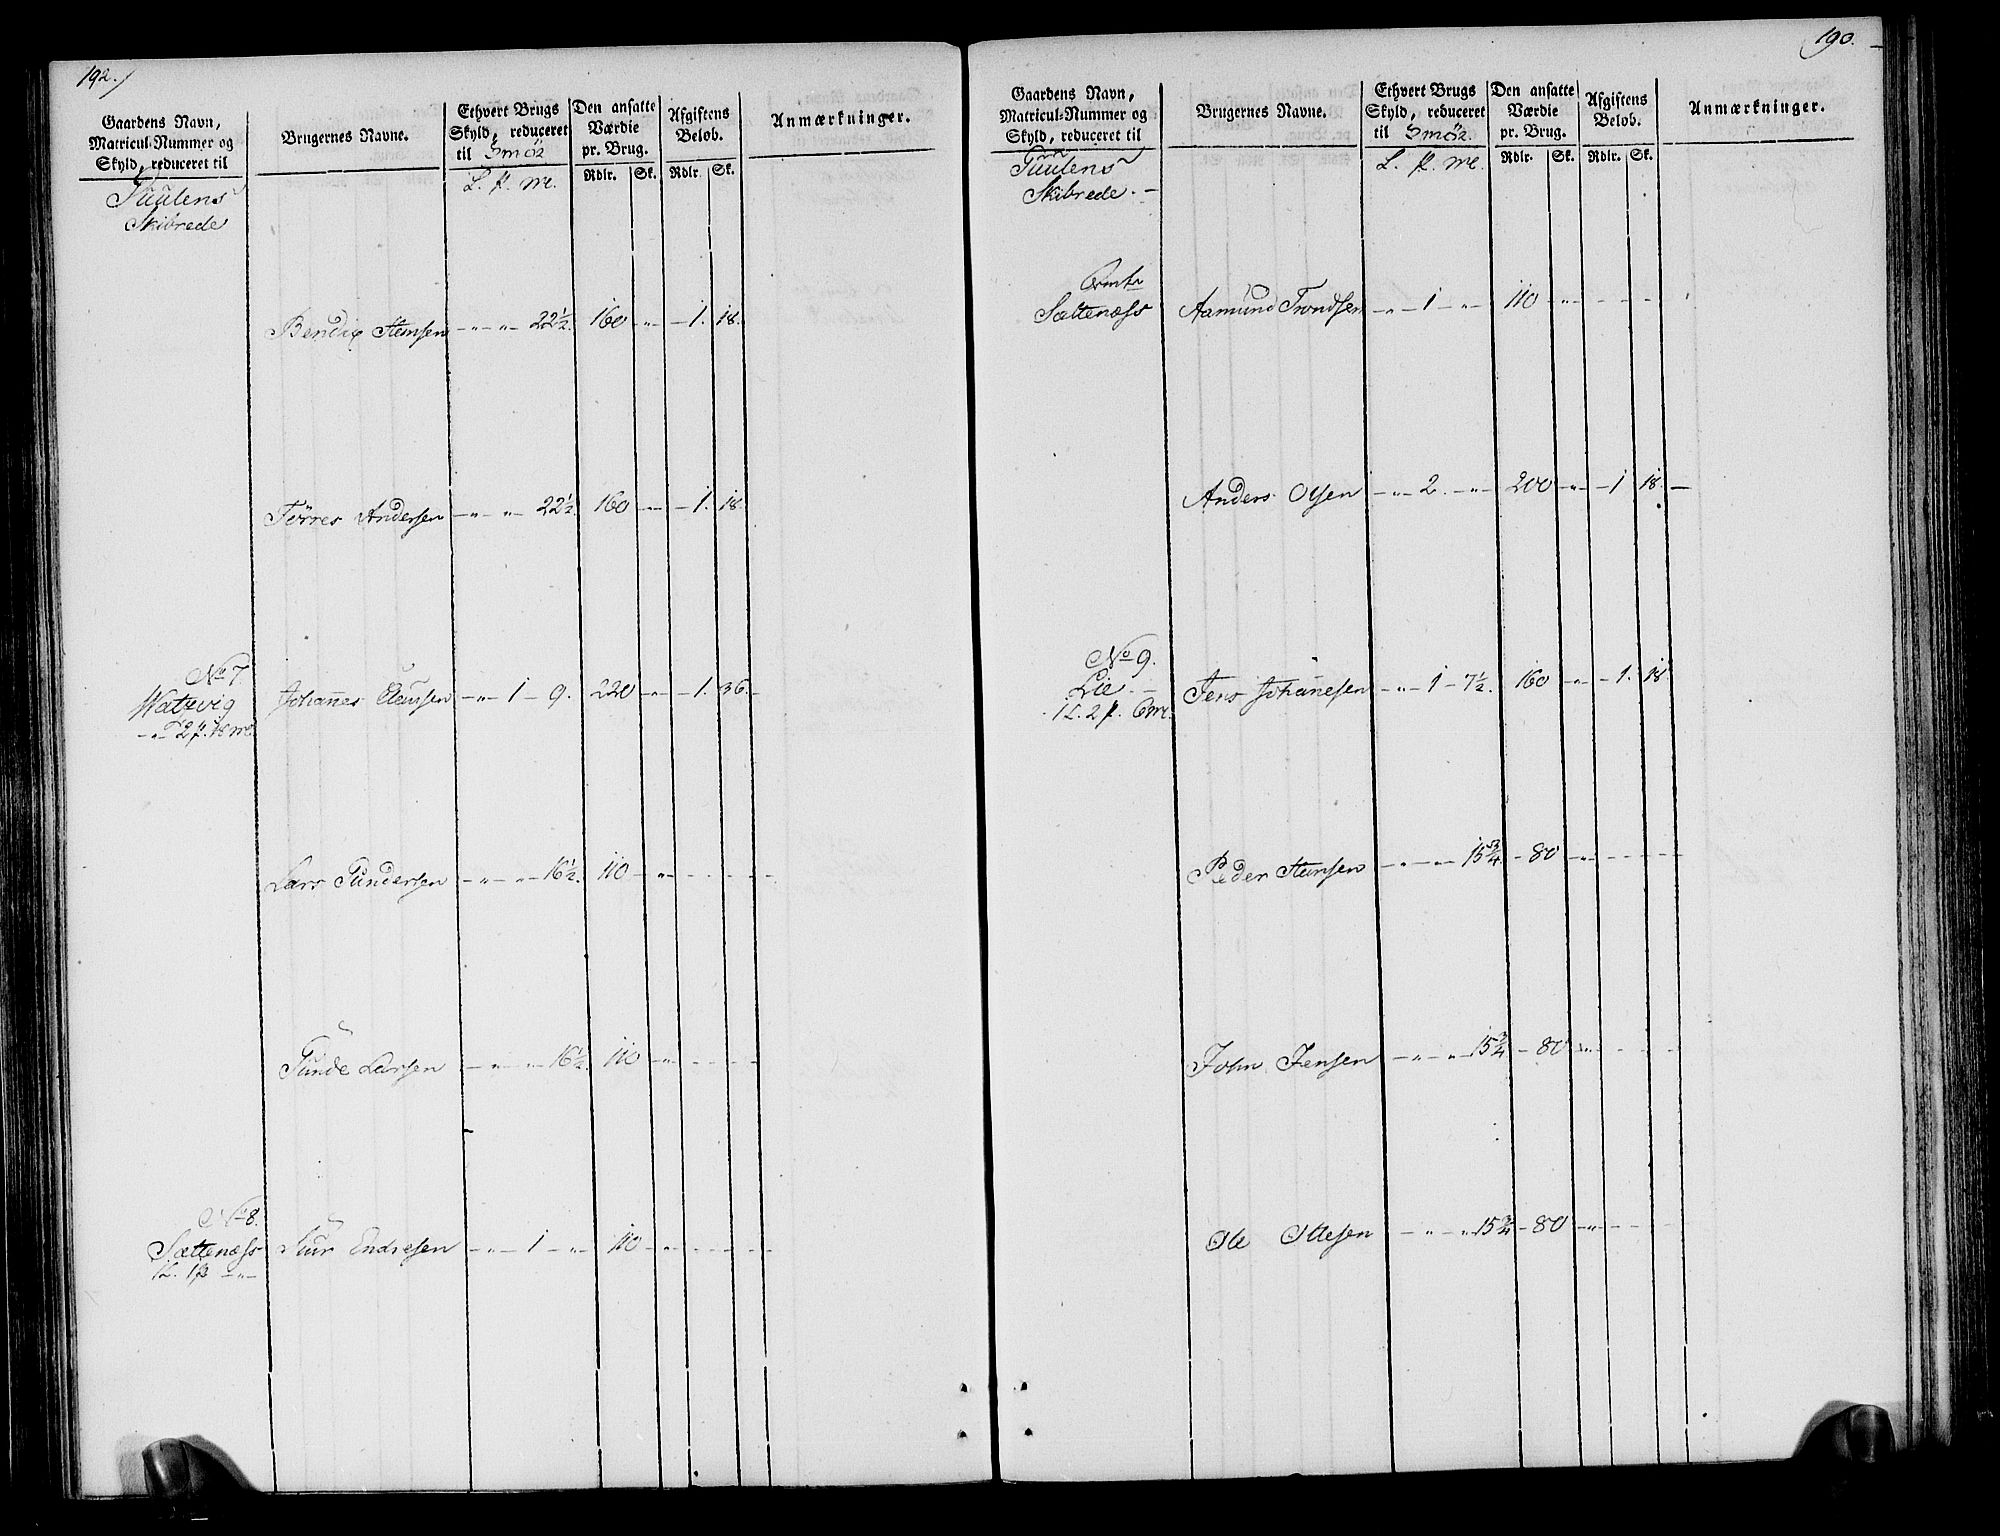 192.
Gaardens Navn,
Matricul-Nummer og
Skyld, reduceret til
Brugernes Navne.
Ethvert Brugs
Skyld, reduceret
til Smör
L. p. mk.
Den ansatte
Værdie
pr. Brug.
Rdlr. Sk.
Afgiftens
Beløb.
Rdlr. Sk.
Anmærkninger.
Skibrede
Bendix Stensen - " - " - 22½. 160 - " - 1. 18.
Törres Andersen - " - " - 22½. 160 - " - 1. 18.
No 7.
Watzvig Johannes Clemsen - " - 1 - 9. 220 - " - 1. 36. -
- " - 2 p. 18 mk.
Lars Gundersen - " - " - 16½. 110 - " - - - -
Gunde Larsen - " - " - 16½. 110 - " - - - -
No 8.
Sættenæss Siur Endresen - " - 1 - " - 110 - " - - - -
1 L. 1 p. - " -
190.
Gaardens Navn,
Matricul-Nummer og
Skyld, reduceret til
Brugernes Navne.
Ethvert Brugs
Skyld, reduceret
til Smör
L. p. mk.
Den ansatte
Værdie
pr. Brug.
Rdlr. Sk.
Afgiftens
Beløb.
Rdlr. Sk.
Anmærkninger.
Skibrede. -
Sættenæss Aamund Trondsen - " - 1 - " - 110 - " - - - -
Anders Olsen - " - 2. - " - 200 - " - 1 18. -
No 9.
Lie. - Jens Johannesen - " - 1 - 7½. 160 - " - 1. 18.
1 L. 2 p. 6 mk.
Peder Stensen - " - " - 15¾ - 80 - " - - - -
John Jensen - " - " - 15¾ - 80 - " - - - -
Ole Ottesen - " - " - 15¾ - 80 - " - - - -